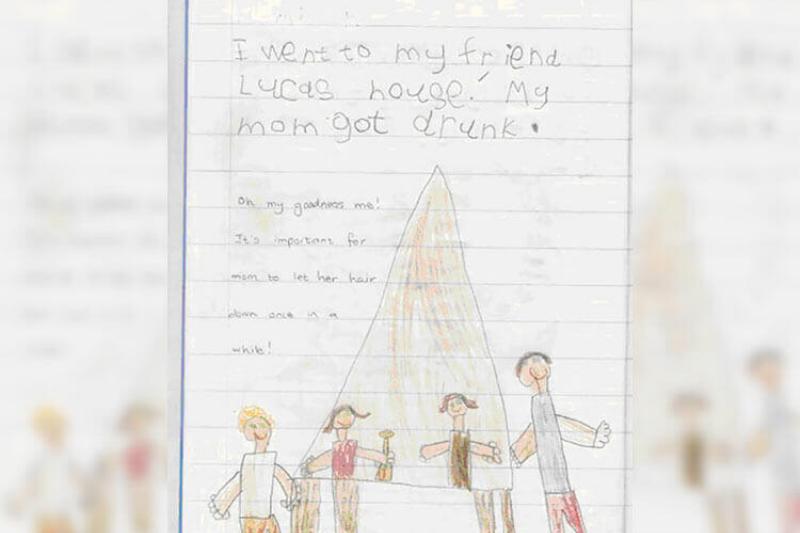 I went to my friend
Lucas house. My
mom got drunk.
Oh my goodness me!
It's important for
mom to let her hair
down once in a
while!